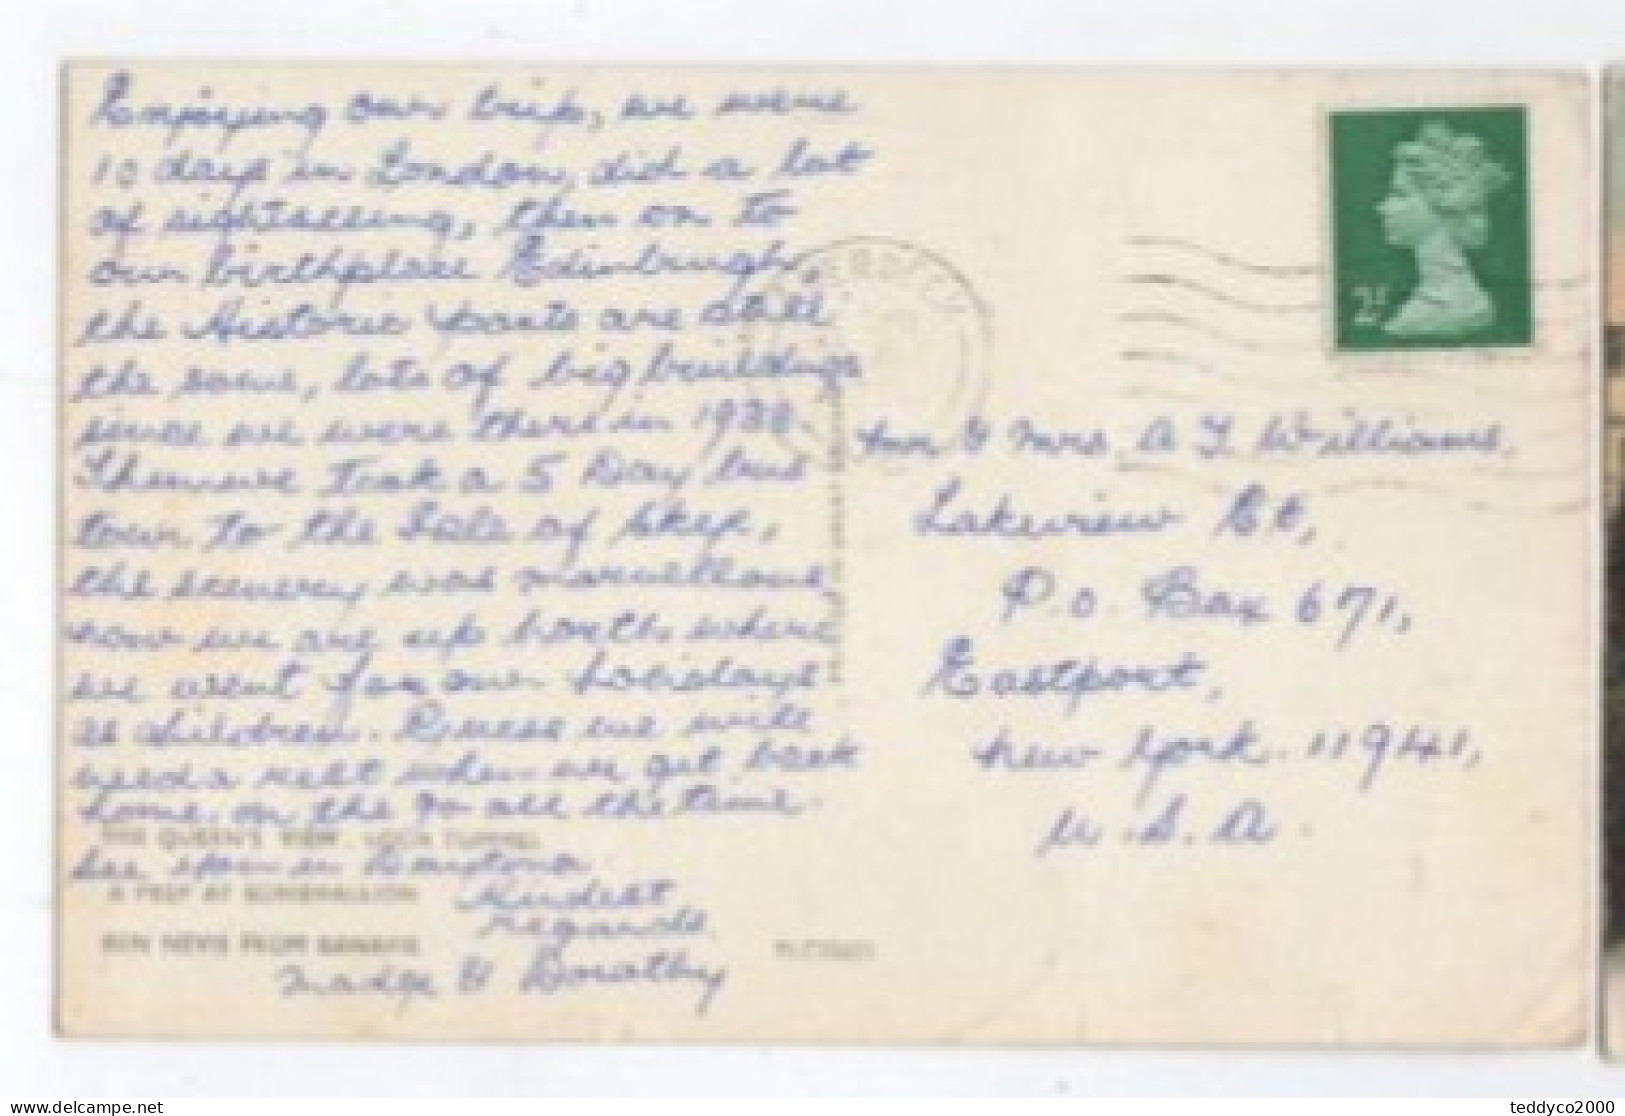 Enjoying our trip, we were
10 days in London, did a lot
of sightseeing, then on to
our birthplace Edinburgh,
the Historic parts are still
the same, lots of big buildings
since we were there in 1938.
Then we took a 5 Day bus
tour to the Isle of Skye,
the scenery was marvellous
now we are up North where
we went for our holidays
as children. Guess we will
need a rest when we get back
home, on the go all the time.
THE QUEEN'S VIEW LOCH TUMMEL
See you in Daytona
A PEEP AT
Kindest
regards.
BEN NEVIS FROM BANAVIE
Madge & Dorothy
2P
Mr & Mrs. A Williams.
Lakeview
P.O. Box 671,
Eastport,
New York. 11941,
U.S.A.
teddyco2000